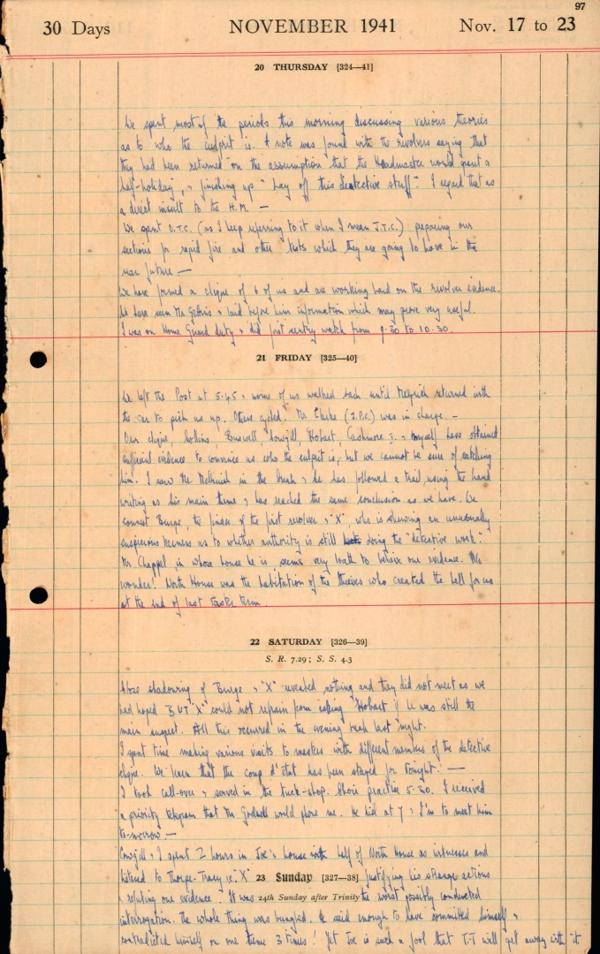 97
30 Days NOVEMBER 1941 Nov. 17 to 23
20 THURSDAY [324—41]
We spent most of the periods this morning discussing various theories
as to who the culprit is. A note was found with the revolvers saying that
they had been returned "on the assumption that the Headmaster would grant a
half-holiday, & finishing up "Lay off this detective stuff". I regard that as
a direct insult to the H.M. —
We spent O.T.C. (as I keep referring to it when I mean J.T.C.) preparing our
sections for rapid fire and other tests which they are going to have in the
near future —
We have formed a clique of 6 of us and are working hard on the revolver evidence.
We have seen the & laid before him information which may prove very useful.
I was on Home Guard duty & did first sentry watch from 9.30 to 10.30.
21 FRIDAY [325—40]
We left the Post at 5.45 & some of us walked back until returned with
the car to pick us up. Others cycled. Mr Clarke was in charge. —
Our clique, Rollins, Buswell, Cowgill, Hobart, & myself have obtained
sufficient evidence to convince us who the culprit is, but we cannot be sure of catching
him. I saw in the & he has followed a trail using the hand
writing as his main theme & has reached the same conclusion as we have. We
connect Burge, the finder of the first revolver & "X" who is showing an unusually
suspicious keenness as to whether authority is still doing the "detective work."
Mr Chappel, in whose house he is, seems very loath to believe our evidence. We
wonder! North House was the habitation of the thieves who created the hell for us
at the end of last Easter term.
22 SATURDAY [326—39]
S. R. 7.29; S. S. 4.3
Above shadowing of Burge & "X" revealed nothing and they did not meet as we
had hoped BUT "X" could not refrain from asking "Hobart" if he was still the
main suspect. All this occurred in the evening last night.
I spent time making various visits to masters with different members of the detective
clique. We learn that the coup d'état has been stayed for tonight. —
I took call-over & served in the tuck-shop. Choir practice 5.30. I received
a priority telegram that Mr Godwill would phone me. He did at 7 & I'm to meet him
to-morrow —
Cowgill & I spent 2 hours in Joe's house with half of North House as witnesses and
listened to Thorpe-Tracy i.e. "X" justifying his strange actions
23 Sunday [327—38]
& refuting our evidence. It was the worst possibly conducted
24th Sunday after Trinity
interrogation, the whole thing was bungled. He said enough to have committed himself &
contradicted himself on one theme 3 times! Yet Joe is such a fool that T-T will get away with it